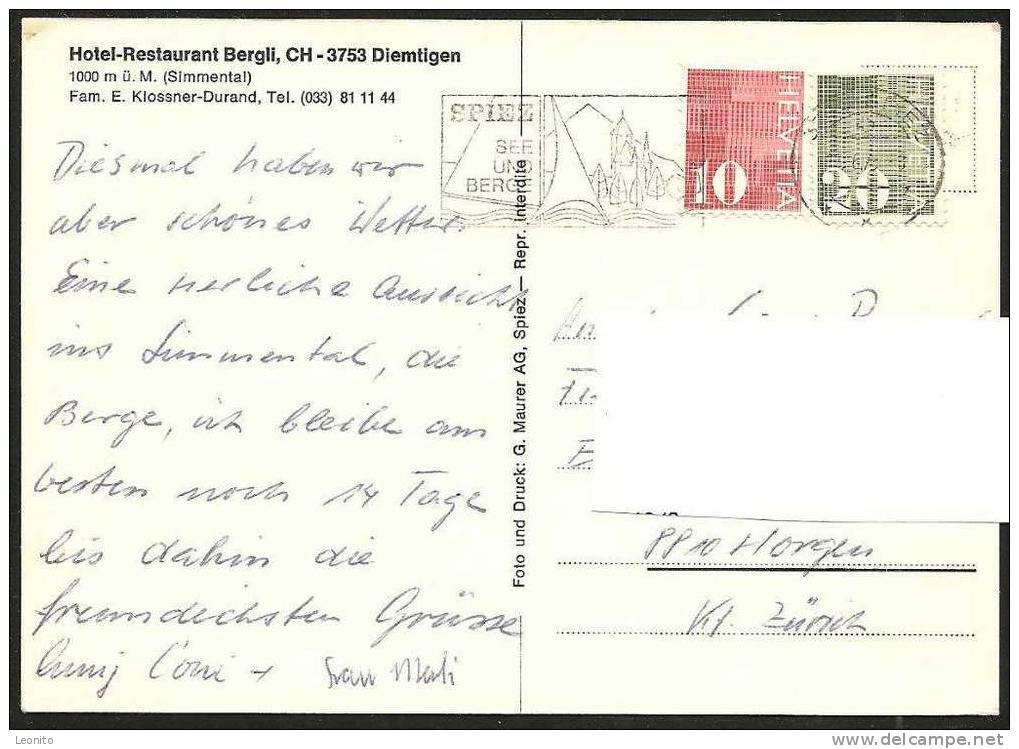 Hotel-Restaurant Bergli, CH - 3753 Diemtigen
1000 m ü. M. (Simmental)
Fam. E. Klossner-Durand, Tel. (033) 81 11 44
Diesmal haben wir
aber schönes Wetter.
Eine herrliche Aussicht
ins Simmental, die
Berge, ich bleibe am
besten noch 14 Tage
bis dahin die
freundlichsten Grüsse
+ Frau
Foto und Druck: G. Maurer AG, Spiez — Repr. interdite
SPIEZ
SEE
UND
BERGE
HELVETIA
10
HELVETIA
20
8810 Horgen
Kt. Zürich
Leonito
www.delcampe.net